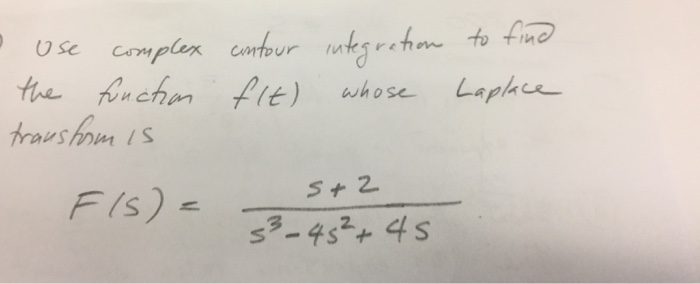 Use complex contour integration to find
the function f(t) whose Laplace
transform is
F(s) = s+2
s³-4s²+4s